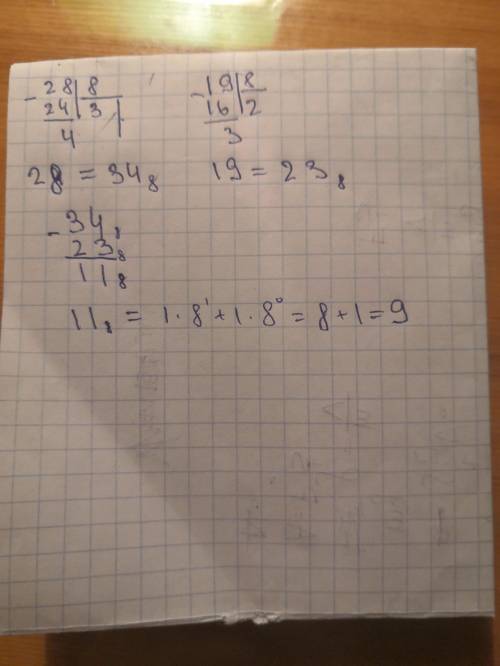 - 28 | 8   - 19 | 8
24 | 3   16 | 2
4   3
28 = 34₈   19 = 23₈
- 34₈
23₈
11₈
11₈ = 1·8¹ + 1·8⁰ = 8 + 1 = 9